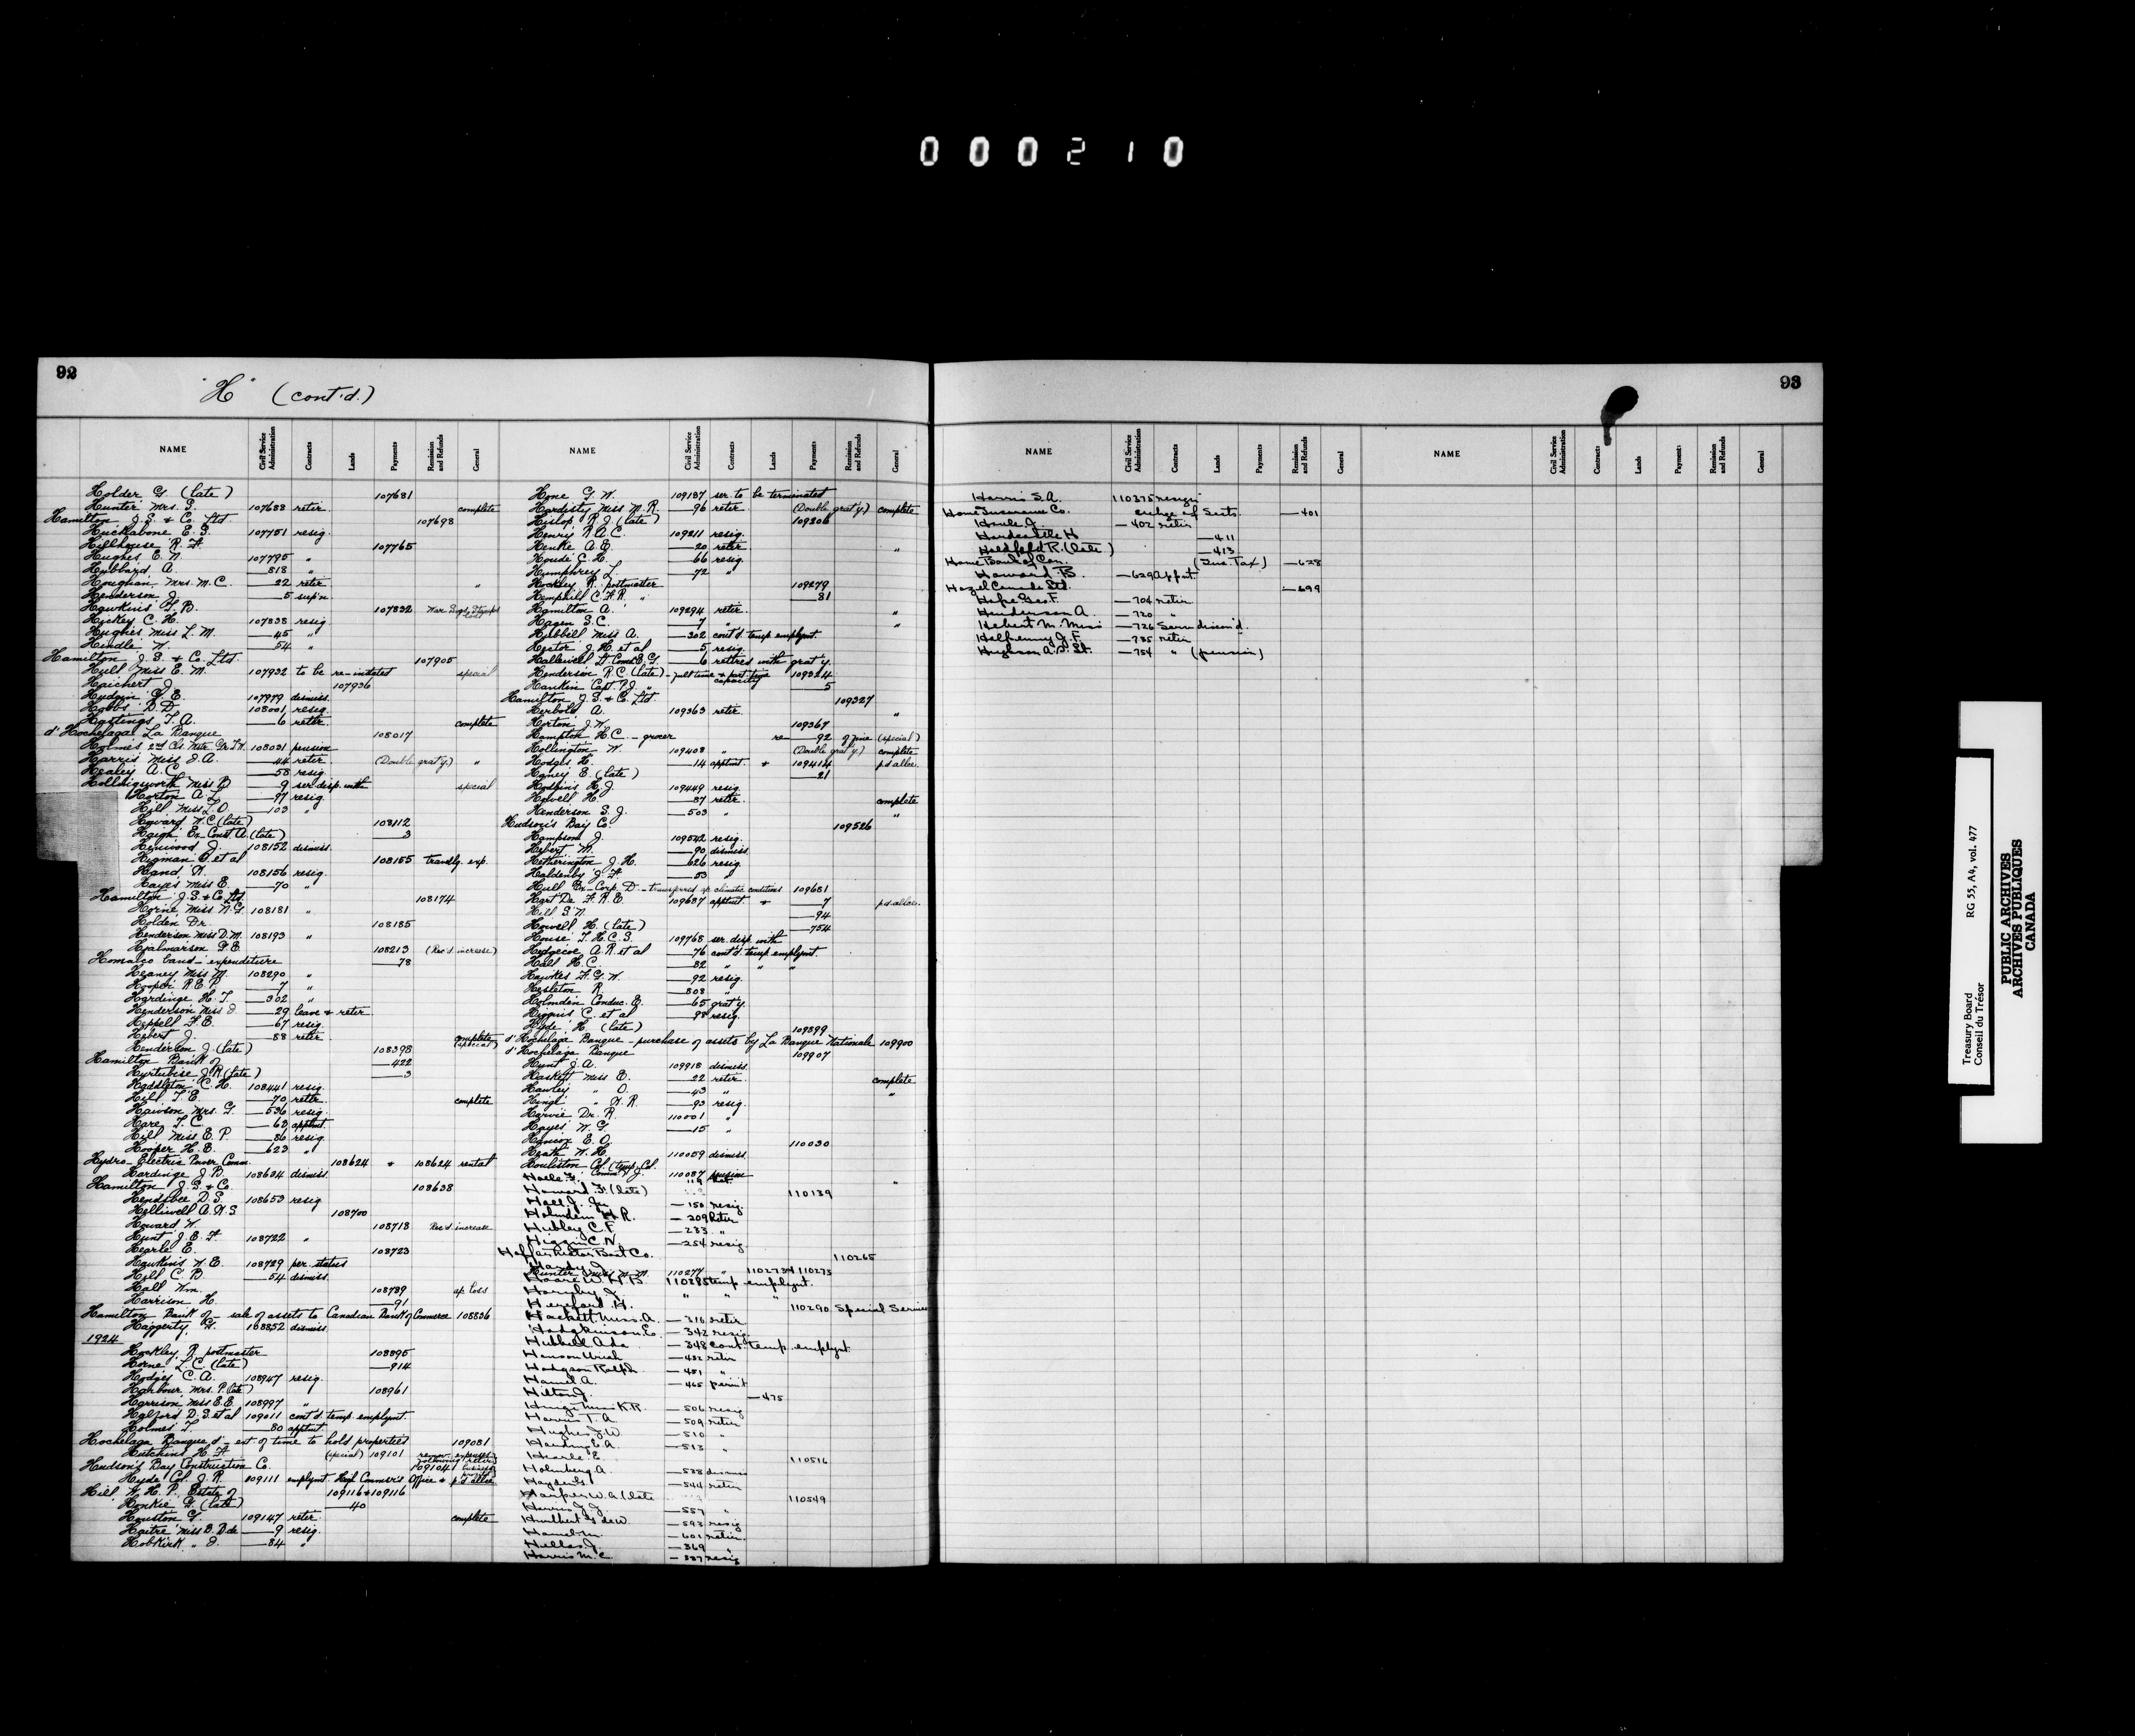 000210
92
"H" (cont'd.)
NAME Civil Service Administration Contracts Lands Payments Remission and Refunds General
Holder G. (late) 107681
Hunter Mrs. S. 107688 retir. complete
Hamilton J.S. & Co. Ltd. 107698
Huckabone E.S. 107751 resig.
Hillhouse R.F. 107765
Hughes E.N. 107795 "
Hubbard A. 818 "
Houghan Mrs. M.C. 22 retir "
Henderson J. 5 susp'n
Hawkins F.B. 107832 War Svgs Stamps lost
Hickey C.H. 107838 resig
Hughes Miss L.M. 45 "
Hindle W. 54 "
Hamilton J.S. & Co. Ltd. 107905
Hull Miss E.M. 107932 to be re-instated special
Haichert J. 107936
Hudgin G.E. 107979 dismiss.
Hobbs D.D. 108001 resig.
Hastings T.A. 6 retir. complete
d'Hochelaga La Banque 108017
Holmes 2nd Cl. Mate Gr. T.W. 108031 pension
Harris Miss J.A. 44 retir (Double grat'y.) "
Healey A.C. 58 resig.
Hollingsworth Miss B. 9 ser. disp. with special
Horton A.L. 97 resig.
Hill Miss L.O. 103 "
Howard W.C. (late) 108112
Haigh Ex-Const A. (late) 3
Henwood J. 108152 dismiss.
Hegman O. et al 108155 travellg. exp.
Hand W. 108156 resig.
Hayes Miss E. 70 "
Hamilton J.S. & Co. Ltd. 108174
Horne Miss N.G. 108181 "
Holden Dr. 108185
Henderson Miss D.M. 108193 "
Hjalmarson F.E. 108213 (Rec'd. increase)
Homalco band - expenditure 78
Heaney Miss M. 108290 "
Hooper R.E.P. 7 "
Hardinge H.T. 302 "
Henderson Miss J. 29 leave & retir
Heppell F.E. 67 resig.
Hebert J. 88 retir. complete (special)
Henderson J. (late) 108398
Hamilton Bank of 422
Hurtubise J.R. (late) 3
Haddleton C.H. 108441 resig.
Hill T.E. 70 retir. complete
Hawson Mrs. G. 536 resig.
Hare T.C. 62 apptmt
Hill Miss E.P. 86 resig.
Hooper H.E. 623 "
Hydro-Electric Power Comm. 108624 & 108624 rental
Hardinge J.B. 108634 dismiss.
Hamilton J.S. & Co. 108638
Hendsbee D.S. 108653 resig.
Helliwell A.N.S. 108700
Howard W. 108718 Rec'd. increase
Hunt J.E.F. 108722 "
Hearle E. 108723
Hawkins W.E. 108729 per. status
Hill C.B. 54 dismiss.
Hall Wm. 108789 sp. loss
Harrison H. 91
Hamilton Bank of - sale of assets to Canadian Bank of Commerce 108836
Haggerty F. 108852 dismiss.
1924
Hockley R. postmaster 108895
Horne L.C. (late) 914
Hodges C.A. 108947 resig.
Harbour Mrs. P. (late) 108961
Harrison Miss E.E. 108997 "
Halford D.S. et al 109011 cont'd. temp. emplymt.
Holmes T. 80 apptmt
Hochelaga Banque d' - ext. of time to hold properties 109081
Hutchins H.F. (special) 109101
Hudson's Bay Construction Co. 109104
Hyde Col. J.R. 109111 emplymt. High Commr's Office & p.d. allce.
Hill W.H.P. Estate of 109116 & 109116
Honkie G. (late) 40
Houston G. 109147 retir. complete
Haitre Miss B. D. de 9 resig.
Hobkirk " J. 84 "
NAME Civil Service Administration Contracts Lands Payments Remission and Refunds General
Hone G.W. 109187 ser. to be terminated
Hardisty Miss M.R. 96 retir (Double grat'y.) complete
Hislop R.J. (late) 109206
Henry R.A.C. 109211 resig.
Henke A.E. 20 retir "
Houde G.H. 66 resig.
Humphrey L. 72 "
Hockley R. postmaster 109279
Hemphill C.F.R. " 81
Hamilton A. 109294 retir. "
Hagen S.C. 7 " "
Hubbell Miss A. 302 cont'd. temp. emplymt.
Hector J.H. et al 5 resig.
Halliwell Lt. Comd. E.G. 6 retired with grat'y.
Henderson R.C. (late) - full time & part time capacity 109324
Hankin Capt. P.J. " 5
Hamilton J.S. & Co. Ltd. 109327
Herbold A. 109363 retir. "
Horton J.W. 109367
Hampton H.C. - grocer re 92 of fine (special)
Hollington W. 109408 " (Double grat'y.) complete
Hodges H. 14 apptmt & 109414 p.d. allce.
Haney E. (late) 21
Hawkins H.J. 109449 resig.
Howell H. 87 retir. complete
Henderson S.J. 503 " "
Hudson's Bay Co. 109526
Hampson J. 109542 resig.
Hebert M. 90 dismiss.
Hetherington J.H. 626 resig.
Haldenby J.F. 53 "
Hull Ex-Corp. D. - transferred a/c climatic conditions 109681
Hart De F.R.E. 109687 apptmt & 7 p.d. allce.
Hill S.N. 94
Howell H. (late) 754
House T.H.C.S. 109768 ser. disp. with
Hedgecoe A.R. et al 76 cont'd. temp. emplymt.
Hall H.C. 82 " " "
Hawkes F.G.W. 92 resig.
Hesleton R. 808 "
Holmden Conduc. E. 65 grat'y.
Higgins C. et al 98 resig.
Hyde H. (late) 109899
d'Hochelaga Banque - purchase of assets by La Banque Nationale 109900
d'Hochelaga Banque 109907
Hunt J.A. 109918 dismiss.
Haskett Miss E. 22 retir. complete
Hawley " O. 43 " "
Hingl " F.R. 93 resig.
Harvie Dr. R. 110001 "
Hayes W.G. 15 "
Hancox E.O. 110030
Heath W.H. 110059 dismiss.
Houliston Col. (temp. Col. Comm.) J.J. 110087 pension
Halle F. 119 "
Howard F. (late) 110139
Hall J. Jr. 150 resig.
Holmden H.R. 209 Retir
Hubley C.F. 233 "
Higgin C.N. 254 resig
110265
Hardy J. 110273 & 110273
Hunter Miss M.M. 110277 "
Hoare W.H.B. 110285 temp. emplymt.
Hornby J. " " "
Hereford H. 110290 Special Services
Hackett Miss A. 316 retir
Hodgkinson E. 342 resig
Hubbell Ada 348 cont. temp. emplymt
Hanson Uriah 432 retir
Hodgson Ralph 451 "
Hamel A. 465 permit
Hilton J. 475
Haige Miss K.R. 506 resig
Harris T.A. 509 retir
Hughes J.W. 510 "
Harding E.A. 513 "
Hearle E. 110516
Holmberg A. 538 dismiss
Hayden G. 544 retir
Harper W.A. (late 110549
Harris J.J. 557 "
Hurlbert G. de W. 593 resig
Hamel M. 601 retir.
Hellas J. 369 "
Harris M.C. 887 resig
93
NAME Civil Service Administration Contracts Lands Payments Remission and Refunds General
Harris S.A. 110375 resign
Home Insurance Co. exchge of Secs. 401
Houle J. 402 retir
Hardcastle H. 411
Holdfeld R. (late) 413
Home Bank of Can. (Ins. Tax) 628
Howard B. 629 Appnt.
Hazel Canada Ltd. 699
Hope Geo. F. 704 retir
Henderson A. 720 "
Hebert M. Miss 726 Serv. discon'd.
Halfpenny J.F. 735 retir
Hughson A.P. St. 754 " (pension)
NAME Civil Service Administration Contracts Lands Payments Remission and Refunds General
Treasury Board RG 55, A4, vol. 477
Conseil du Trésor
PUBLIC ARCHIVES
ARCHIVES PUBLIQUES
CANADA